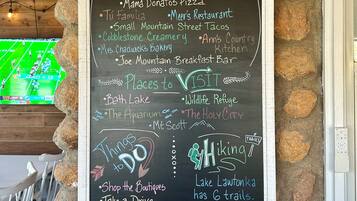 Mama Donatos Pizza
• Tu familia • Meers Restaurant
• Small Mountain Street Tacos
• Cobblestone Creamery • Ann's Country Kitchen
• Mrs. Chadwicks Bakery
• Joe Mountain Breakfast Bar
Places to VISIT
• Bath Lake • Wildlife Refuge
• The Aquarium • The HOLY CITY
• Mt Scott
Things to DO
xoxo
Hiking
TRAILS
• Shop the Boutiques
Lake Lawtonka
has 6 trails.